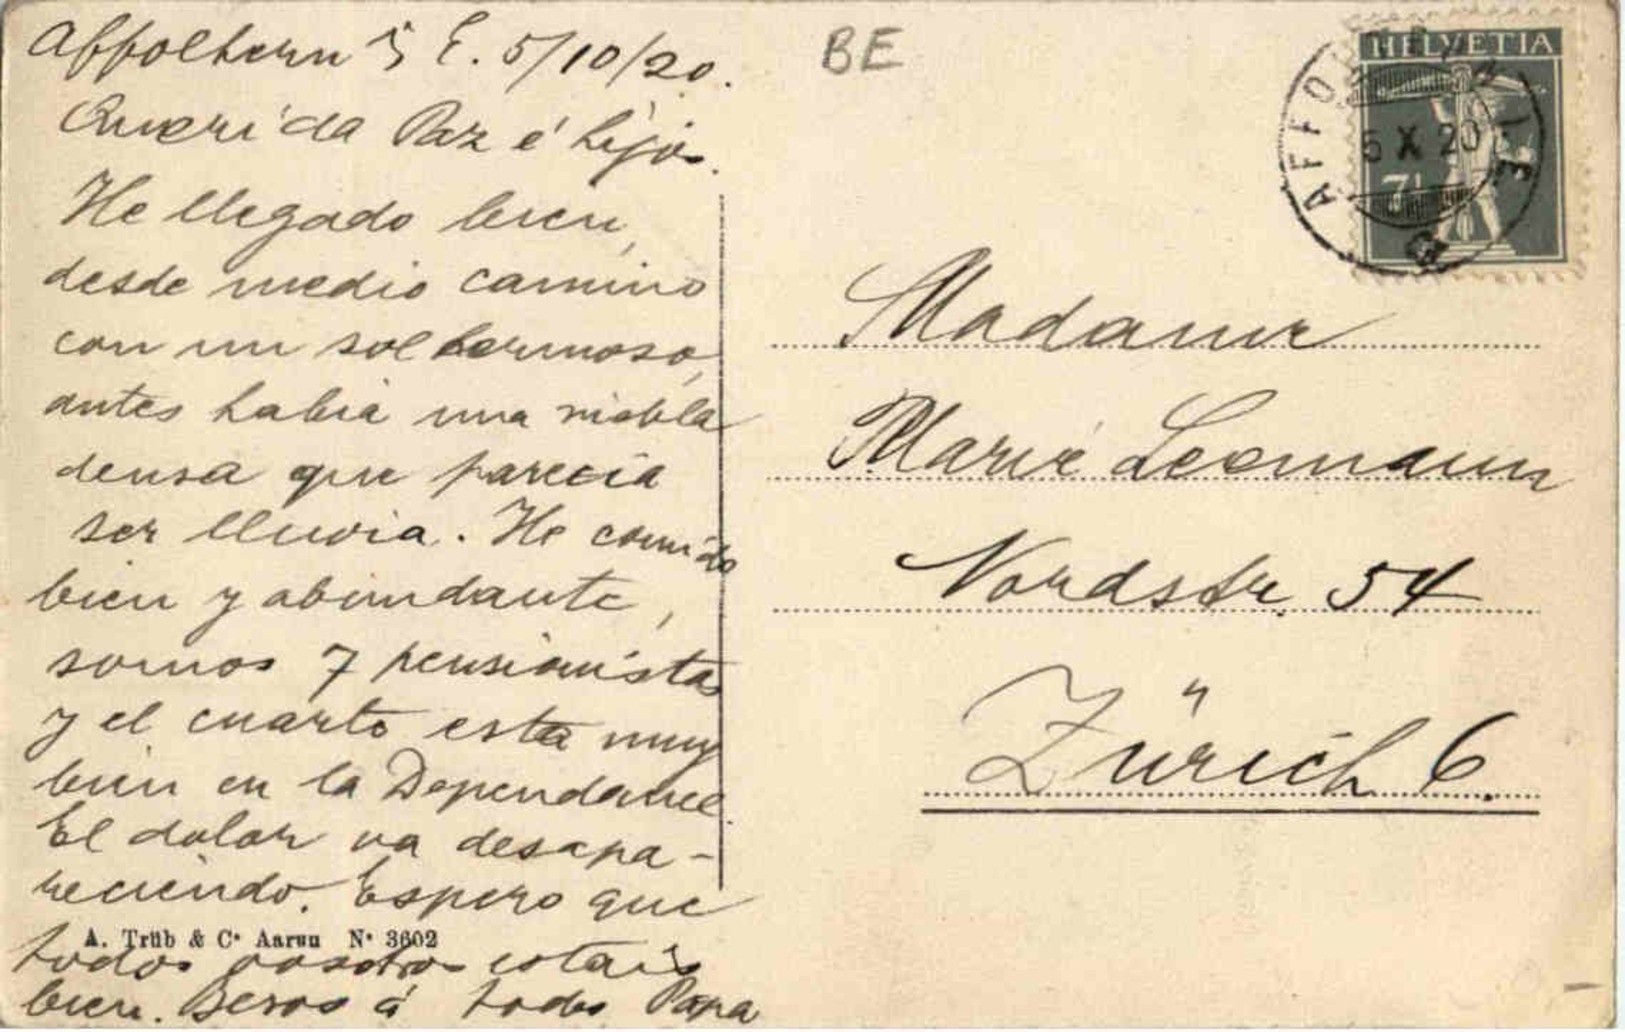 Affoltern i/ E. 5/10/20.
Querida Paz é hijos.
He llegado bien,
desde medio camino
con un sol hermoso,
antes habia una niebla
densa que parecia
ser lluvia. He comido
bien y abundante,
somos 7 pensionistas
y el cuarto esta muy
bien en la Dependance.
El dolor va desapa-
reciendo. Espero que
todos vosotros estais
bien. Besos á todos Papa
A. Trüb & Cⁱᵉ Aarau Nº 3602
BE
HELVETIA
7½
5 X 20
Madame
Marie Leemann
Nordstr. 54
Zürich 6.